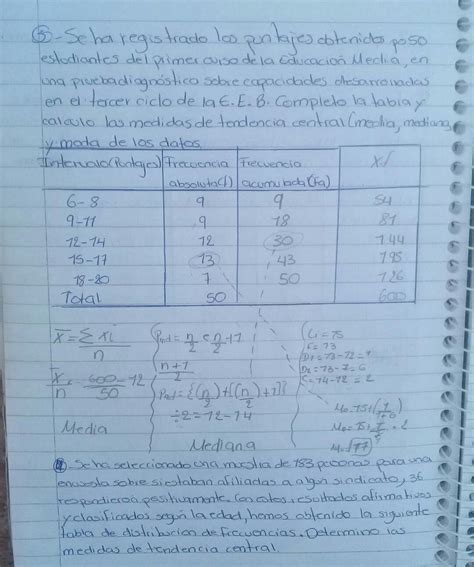 ③-Se ha registrado los puntajes obtenidos po 50
estudiantes del primer curso de la Educación Media, en
una prueba diagnóstica sobre capacidades desarrolladas
en el tercer ciclo de la E.E.B. Completo la tabla y
calculo las medidas de tendencia central (media, mediana
y moda de los datos.
Intervalo (Puntajes) Frecuencia absoluta (f) Frecuencia acumulada (fa) X.f
6-8 9 9 54
9-11 9 18 81
12-14 12 30 144
15-17 13 43 195
18-20 7 50 126
Total 50 600
x̄ = Σ xi / n
x̄ = 600 = 12
n 50
Media
n/2 n/2 + 1
n+1 / 2
{(n/2) + [(n/2) + 1]}
÷2 = 12-14
Mediana
Li = 15
= 13
D1 = 13-12 = 1
D2 = 13-7 = 6
Se ha seleccionado una muestra de 183 personas para una
encuesta sobre si estaban afiliadas a algún sindicato, 36
respondieron positivamente. Con estos resultados afirmativos
y clasificados según la edad, hemos obtenido la siguiente
tabla de distribución de frecuencias. Determino las
medidas de tendencia central.